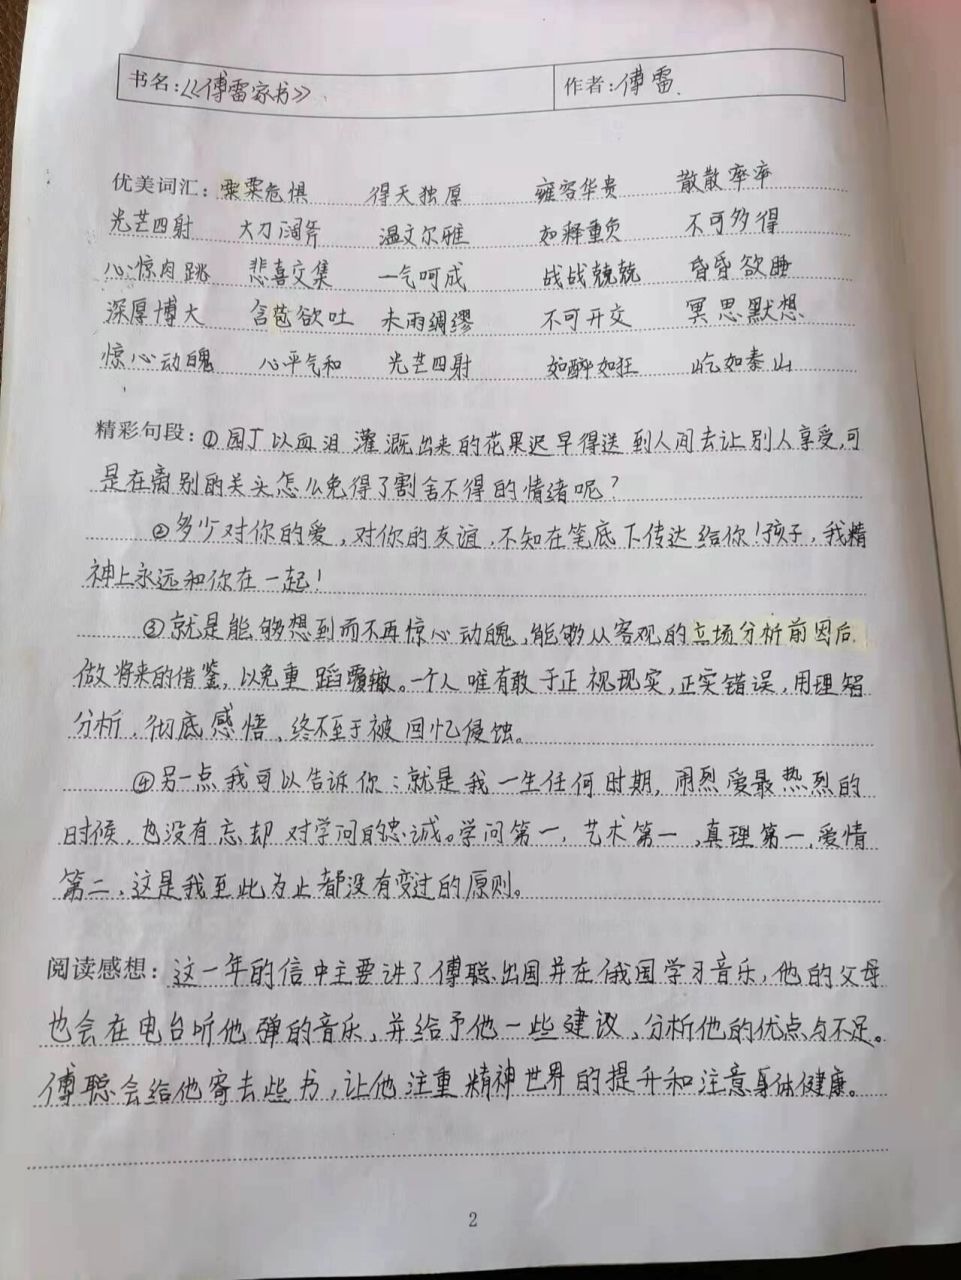 书名:《傅雷家书》 作者:傅雷.
优美词汇: 栗栗危惧 得天独厚 雍容华贵 散散率率
光芒四射 大刀阔斧 温文尔雅 如释重负 不可多得
心惊肉跳 悲喜交集 一气呵成 战战兢兢 昏昏欲睡
深厚博大 含苞欲吐 未雨绸缪 不可开交 冥思默想
惊心动魄 心平气和 光芒四射 如醉如狂 屹如泰山
精彩句段: ①园丁以血泪灌溉出来的花果迟早得送到人间去让别人享受,可
是在离别的关头怎么免得了割舍不得的情绪呢?
②多少对你的爱,对你的友谊,不知在笔底下传达给你!孩子,我精
神上永远和你在一起!
③就是能够想到而不再惊心动魄,能够从客观的立场分析前因后
做将来的借鉴,以免重蹈覆辙。一个人唯有敢于正视现实,正实错误,用理智
分析,彻底感悟、终不至于被回忆侵蚀。
④另一点我可以告诉你:就是我一生任何时期,闹烈爱最热烈的
时候,也没有忘却对学问的忠诚。学问第一,艺术第一,真理第一,爱情
第二,这是我至此为止都没有变过的原则。
阅读感想: 这一年的信中主要讲了傅聪出国并在俄国学习音乐,他的父母
也会在电台听他弹的音乐,并给予他一些建议、分析他的优点与不足。
傅聪会给他寄去些书,让他注重精神世界的提升和注意身体健康。
2